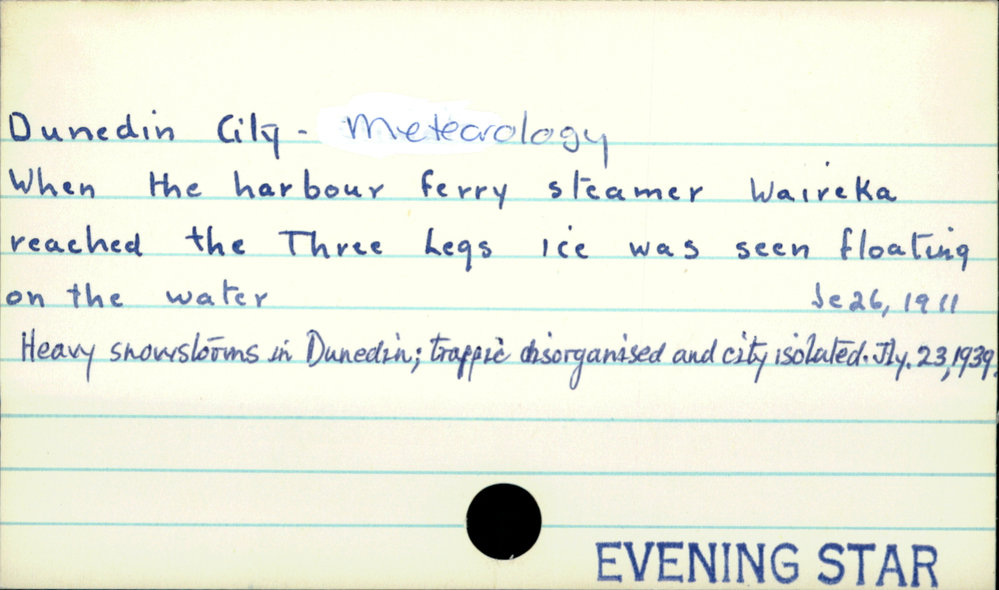 Dunedin City - Meteorology
When the harbour ferry steamer Waireka
reached the Three Legs ice was seen floating
on the water Je 26, 1911
Heavy snowstorms in Dunedin; traffic disorganised and city isolated. Jly. 23, 1939.
EVENING STAR